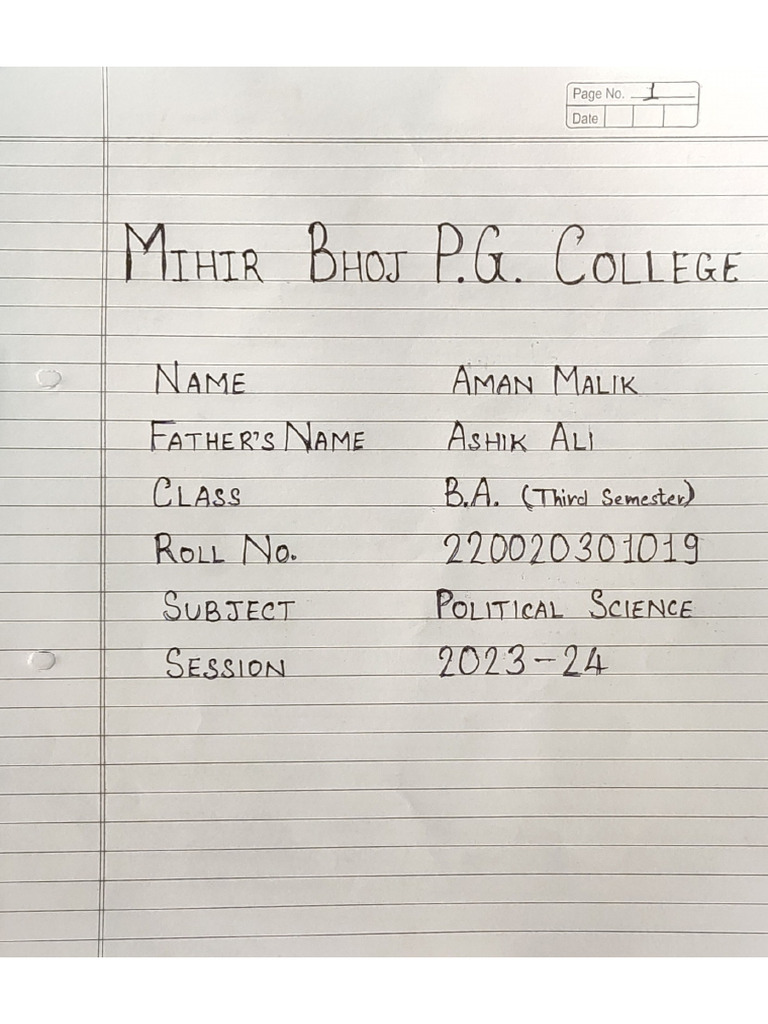 Page No. 1
Date
MIHIR BHOJ P.G. COLLEGE
NAME AMAN MALIK
FATHER'S NAME ASHIK ALI
CLASS B.A. (Third Semester)
ROLL NO. 220020301019
SUBJECT POLITICAL SCIENCE
SESSION 2023-24